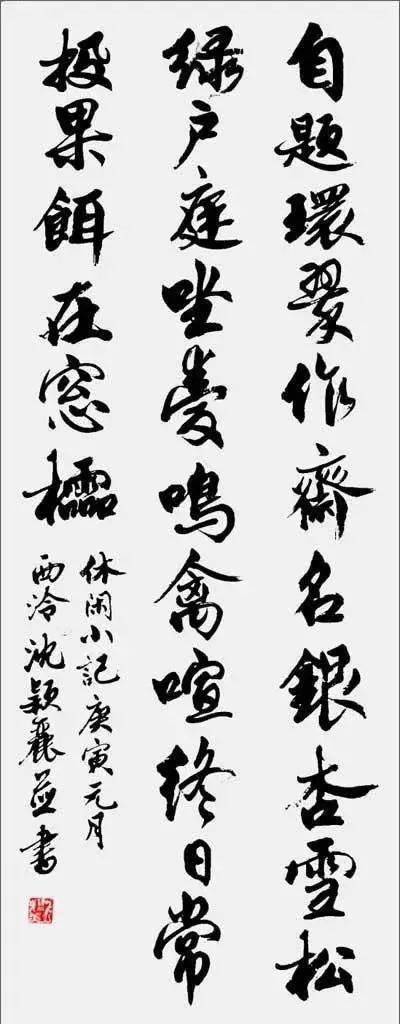 自題環翠作齋名銀杏雪松
綠戶庭坐愛鳴禽喧終日常
投果餌在窓櫺
休閑小記庚寅元月
西泠沈穎麗並書